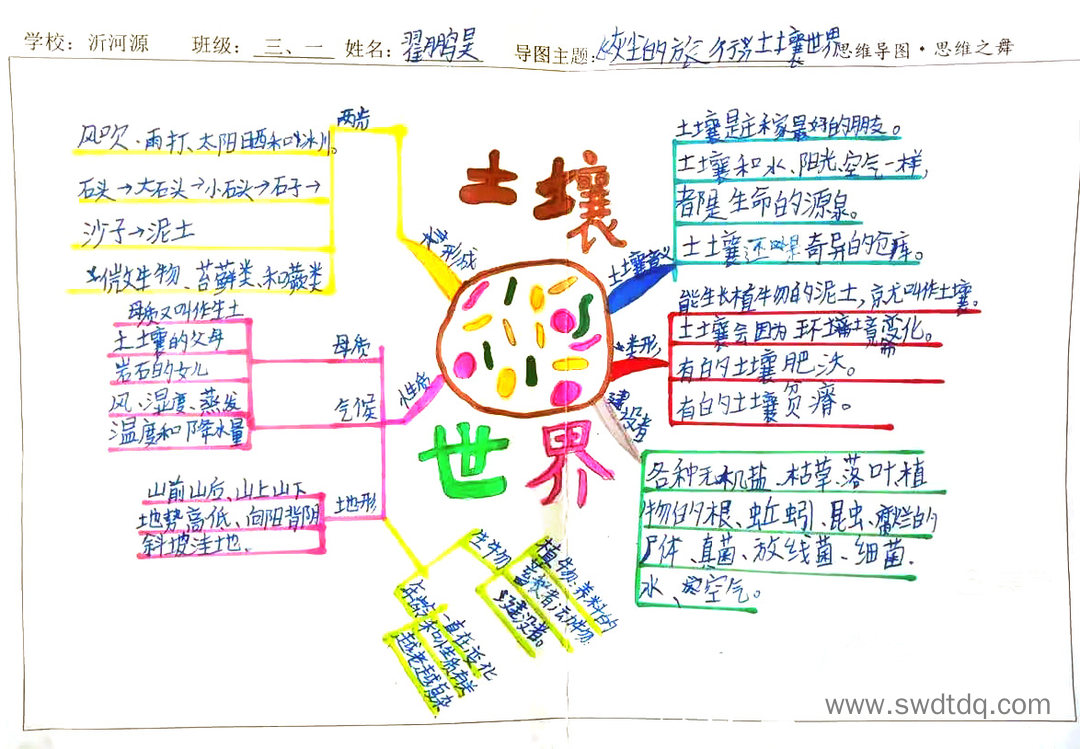 学校: 沂河源 班级: 三、一 姓名: 翟鹏昊 导图主题: 灰尘的旅行务土壤世界 思维导图·思维之舞
土壤
世界
形成
两步
风吹、雨打、太阳晒和冰川。
石头→大石头→小石头→石子→
沙子→泥土
微生物、苔藓类、和蕨类
性质
母质
母质又叫作生土
土壤的父母
岩石的女儿
气候
风、湿度、蒸发
温度和降水量
地形
山前山后、山上山下
地势高低、向阳背阴
斜坡洼地.
生物
植物:养料的
蓄积者;动物:
建设者。
年龄
一直在变化
和性质有关
越老越复杂
土壤意义
土壤是庄稼最好的朋友。
土壤和水、阳光、空气一样,
都是生命的源泉。
土壤还是奇异的仓库。
类形
能生长植物的泥土,就叫作土壤。
土壤会因为环境变化。
有的土壤肥沃。
有的土壤贫瘠。
建设者
各种无机盐、枯草、落叶植
物的根、蚯蚓、昆虫、腐烂的
尸体、真菌、放线菌、细菌.
水、空气。
www.swdtdq.com